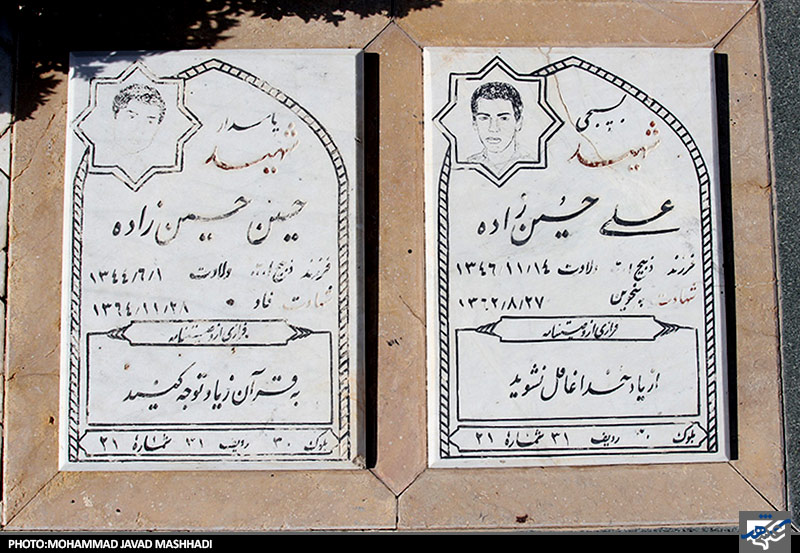 پاسدار
شهید
حسین حسین زاده
فرزند ذبیح الله ولادت ۱۳۴۴/۶/۱
شهادت فاو ۱۳۶۴/۱۱/۲۸
فرازی از وصیتنامه
به قرآن زیاد توجه کنید
بلوک ۳۰ ردیف ۳۱ شماره ۲۱
بسیجی
شهید
علی حسین زاده
فرزند ذبیح الله ولادت ۱۳۴۶/۱۱/۱۴
شهادت پنجوین ۱۳۶۲/۸/۲۷
فرازی از وصیتنامه
از یاد خدا غافل نشوید
بلوک ۳۰ ردیف ۳۱ شماره ۲۱
PHOTO:MOHAMMAD JAVAD MASHHADI